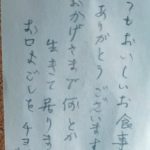 てもおいしいお食事
ありがとうございます
おかげさまで何とか
生きて居りま
お口よごしをチヨ